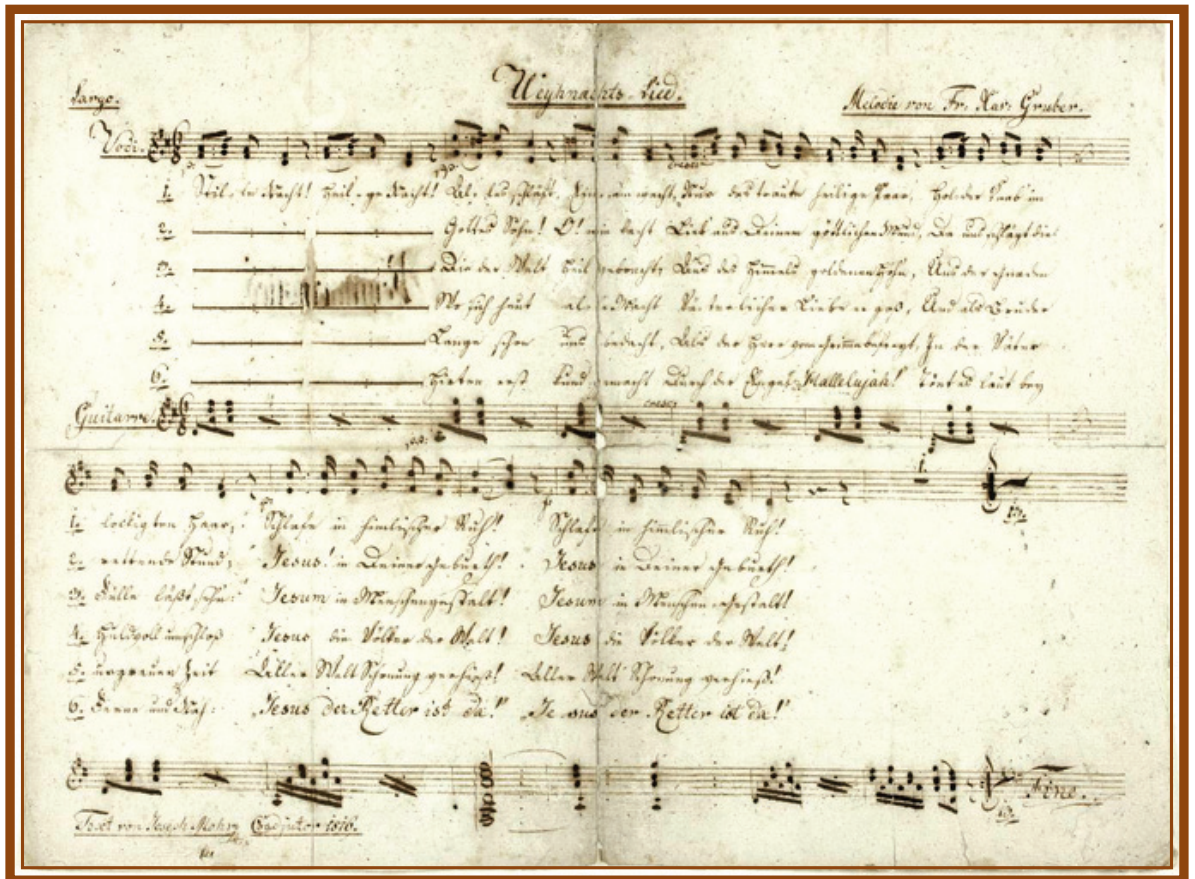 Largo. Weyhnachts-Lied. Melodie von Fr. Xav: Gruber.
Voci.
cresc.
1. Stil-le Nacht! Heil-ge Nacht! Alles schläft, Einsam wacht, Nur das traute heilige Paar, Holder Knab im
2. Gottes Sohn! O! wie lacht Lieb' aus Deinem göttlichen Mund, Da uns schlägt die
3. Die der Welt Heil gebracht; Aus des Himmels goldenen Höhn, Aus der Gnaden
4. Wo sich heut alle Macht Väterlicher Liebe ergoß, Und als Bruder
5. Lange schon uns bedacht, Als der Herr vom Grimme befreyt, In der Väter
6. Hirten erst kund gemacht Durch der Engel „Hallelujah!" Tönt es laut bey
Guitarre.
cresc.
1. lockigten Haar; Schlafe in himmlischer Ruh! Schlafe in himmlischer Ruh!
2. rettende Stund; Jesus! in Deiner Geburth! Jesus in Deiner Geburth!
3. Fülle läßt sehn: Jesum in Menschengestalt! Jesum in Menschen-Gestalt!
4. Huldvoll umschloß Jesus die Völker der Welt! Jesus die Völker der Welt!
5. urgrauer Zeit Aller Welt Schonung verhieß! Aller Welt Schonung verhieß!
6. Ferne und Nah: „Jesus der Retter ist da!" „Jesus der Retter ist da!"
Fine.
Text von Joseph Mohr Coadjutor 1816.